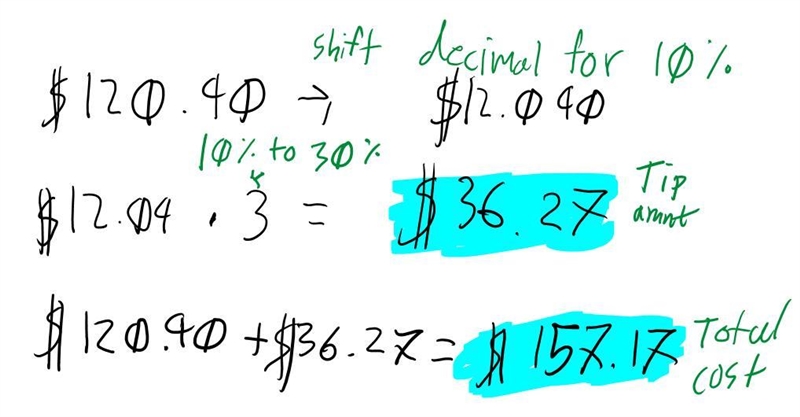 shift decimal for 10%
$120.40 → $12.040
10% to 30%
$12.04 · 3 = $36.27 Tip amnt
$120.40 + $36.27 = $157.17 Total cost